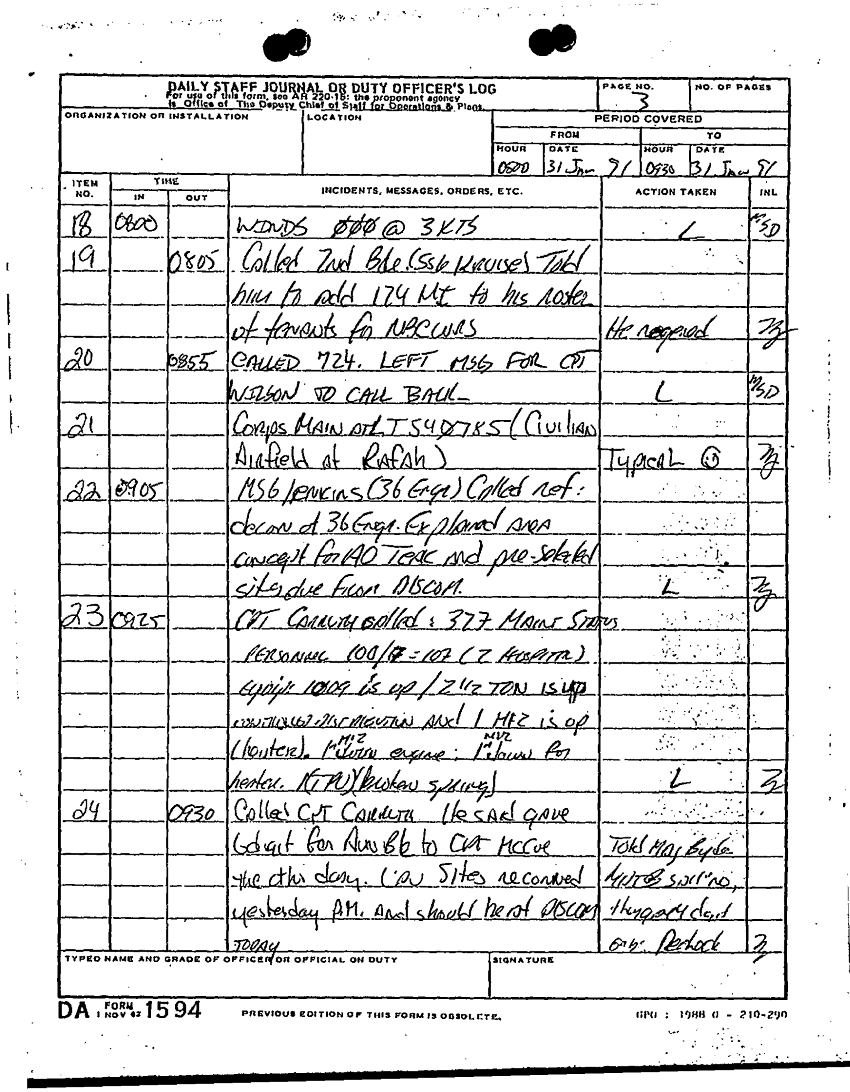 DAILY STAFF JOURNAL OR DUTY OFFICER'S LOG
For use of this form, see AR 220-15: the proponent agency
is Office of The Deputy Chief of Staff for Operations & Plans.
PAGE NO.
3
NO. OF PAGES
ORGANIZATION OR INSTALLATION
LOCATION
PERIOD COVERED
FROM
TO
HOUR
DATE
HOUR
DATE
0800 31 Jan 91 0930 31 Jan 91
ITEM NO.
TIME
IN
OUT
INCIDENTS, MESSAGES, ORDERS, ETC.
ACTION TAKEN
INL
18 0800 WINDS 000 @ 3 KTS L MSD
19 0805 Called 2nd Bde (SSG Krause) Told
him to add 174 MI to his roster
of tenants for NBCWRS He rogered
20 0855 CALLED 724. LEFT MSG FOR CPT
WILSON TO CALL BACK L MSD
21 Corps MAIN at LT540785 (Civilian
Airfield at RAFAH) Typical
22 0905 MSG Jenkins (36 Engr) Called ref:
decon of 36 Engr. Explained area
concept for AO and pre-selected
sites due from DISCOM. L
23 0925 CPT called: 377 MAINT STATUS
PERSONNEL 100/7 = 107 (2 HOSPITAL)
1009 is up / 2 1/2 TON is up
AND 1 is up
(heater). engine: down for
heater. (broken spring) L
24 0930 Called CPT He said gave
6 digit for to CPT McCue
the other day. Sites reconned Told Maj
yesterday P.M. and should be at DISCOM
TODAY
TYPED NAME AND GRADE OF OFFICER OR OFFICIAL ON DUTY
SIGNATURE
DA FORM 1 NOV 62 1594
PREVIOUS EDITION OF THIS FORM IS OBSOLETE.
GPO : 1988 O - 210-290